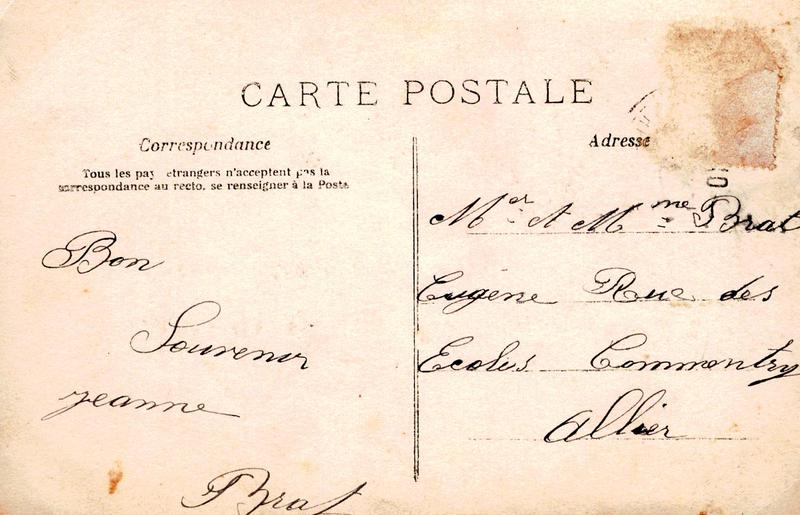 CARTE POSTALE
Correspondance
Tous les pays etrangers n'acceptent pas la
correspondance au recto, se renseigner à la Poste
Bon
Souvenir
Jeanne
Brat
Adresse
Mer et Mme Brat
Eugène Rue des
Ecoles Commentry
Allier